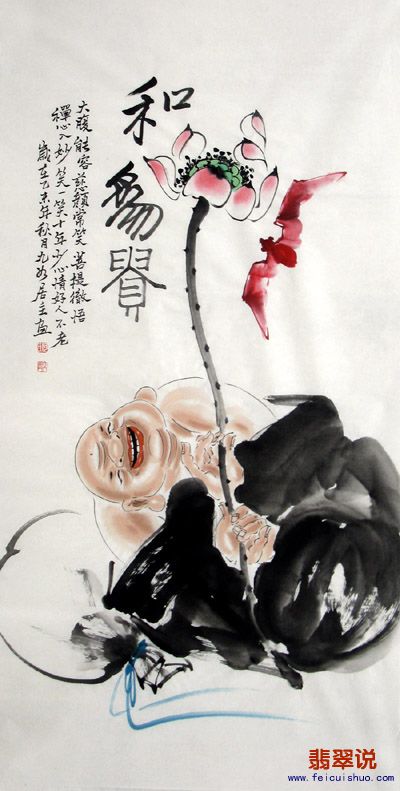 和
爲
貴
大腹能容慈顏常笑菩提徹悟
禪心入妙笑一笑十年少心情好人不老
歲在乙未年秋月九如居主画
翡翠说
www.feicuishuo.com